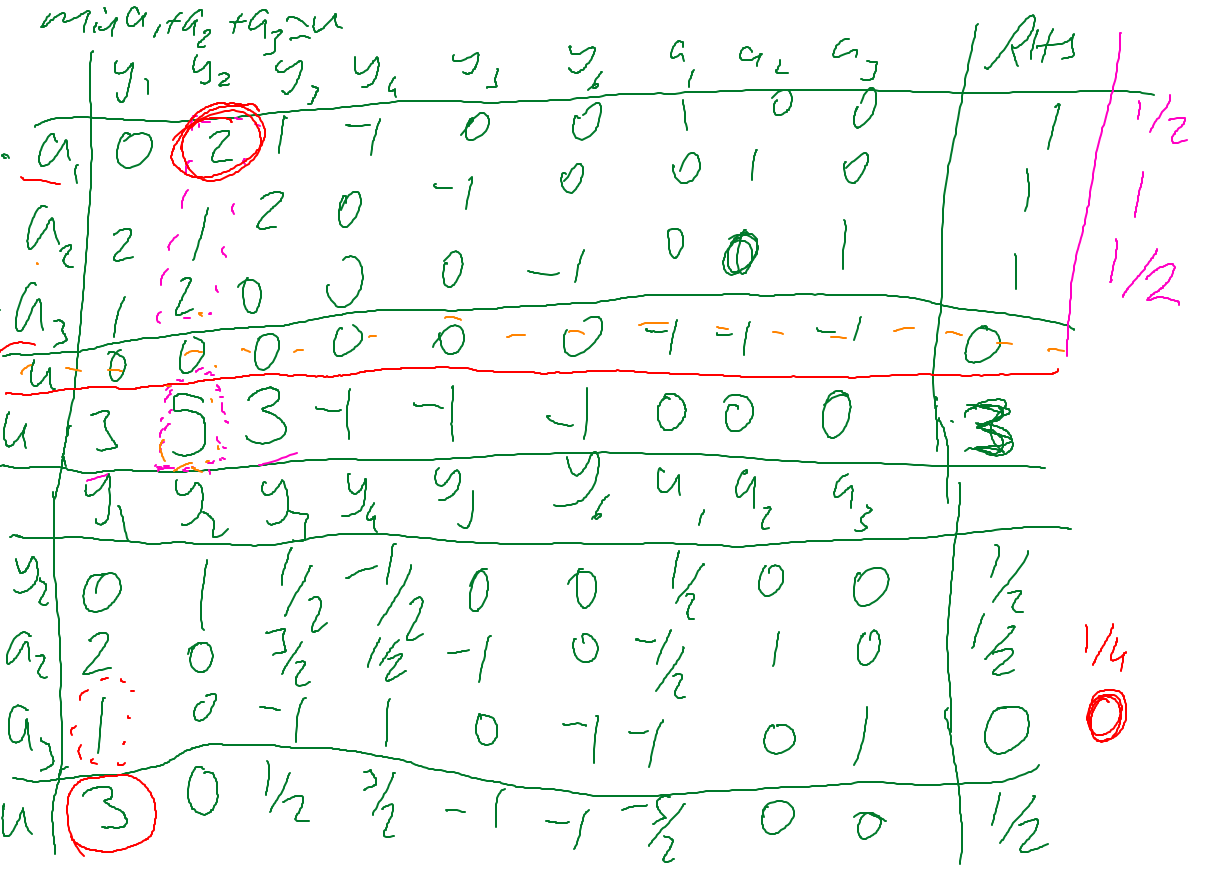 min a₁+a₂+a₃=u
y₁ y₂ y₃ y₄ y₅ y₆ a₁ a₂ a₃ RHS
a₁ 0 2 1 -1 0 0 1 0 0 1 1/2
a₂ 2 1 2 0 -1 0 0 1 0 1 1
a₃ 1 2 0 0 0 -1 0 0 1 1 1/2
u 0 0 0 0 0 0 -1 -1 -1 0
u 3 5 3 -1 -1 -1 0 0 0 3
y₁ y₂ y₃ y₄ y₅ y₆ a₁ a₂ a₃
y₂ 0 1 1/2 -1/2 0 0 1/2 0 0 1/2
a₂ 2 0 3/2 1/2 -1 0 -1/2 1 0 1/2 1/4
a₃ 1 0 -1 1 0 -1 -1 0 1 0 0
u 3 0 1/2 3/2 -1 -1 -5/2 0 0 1/2